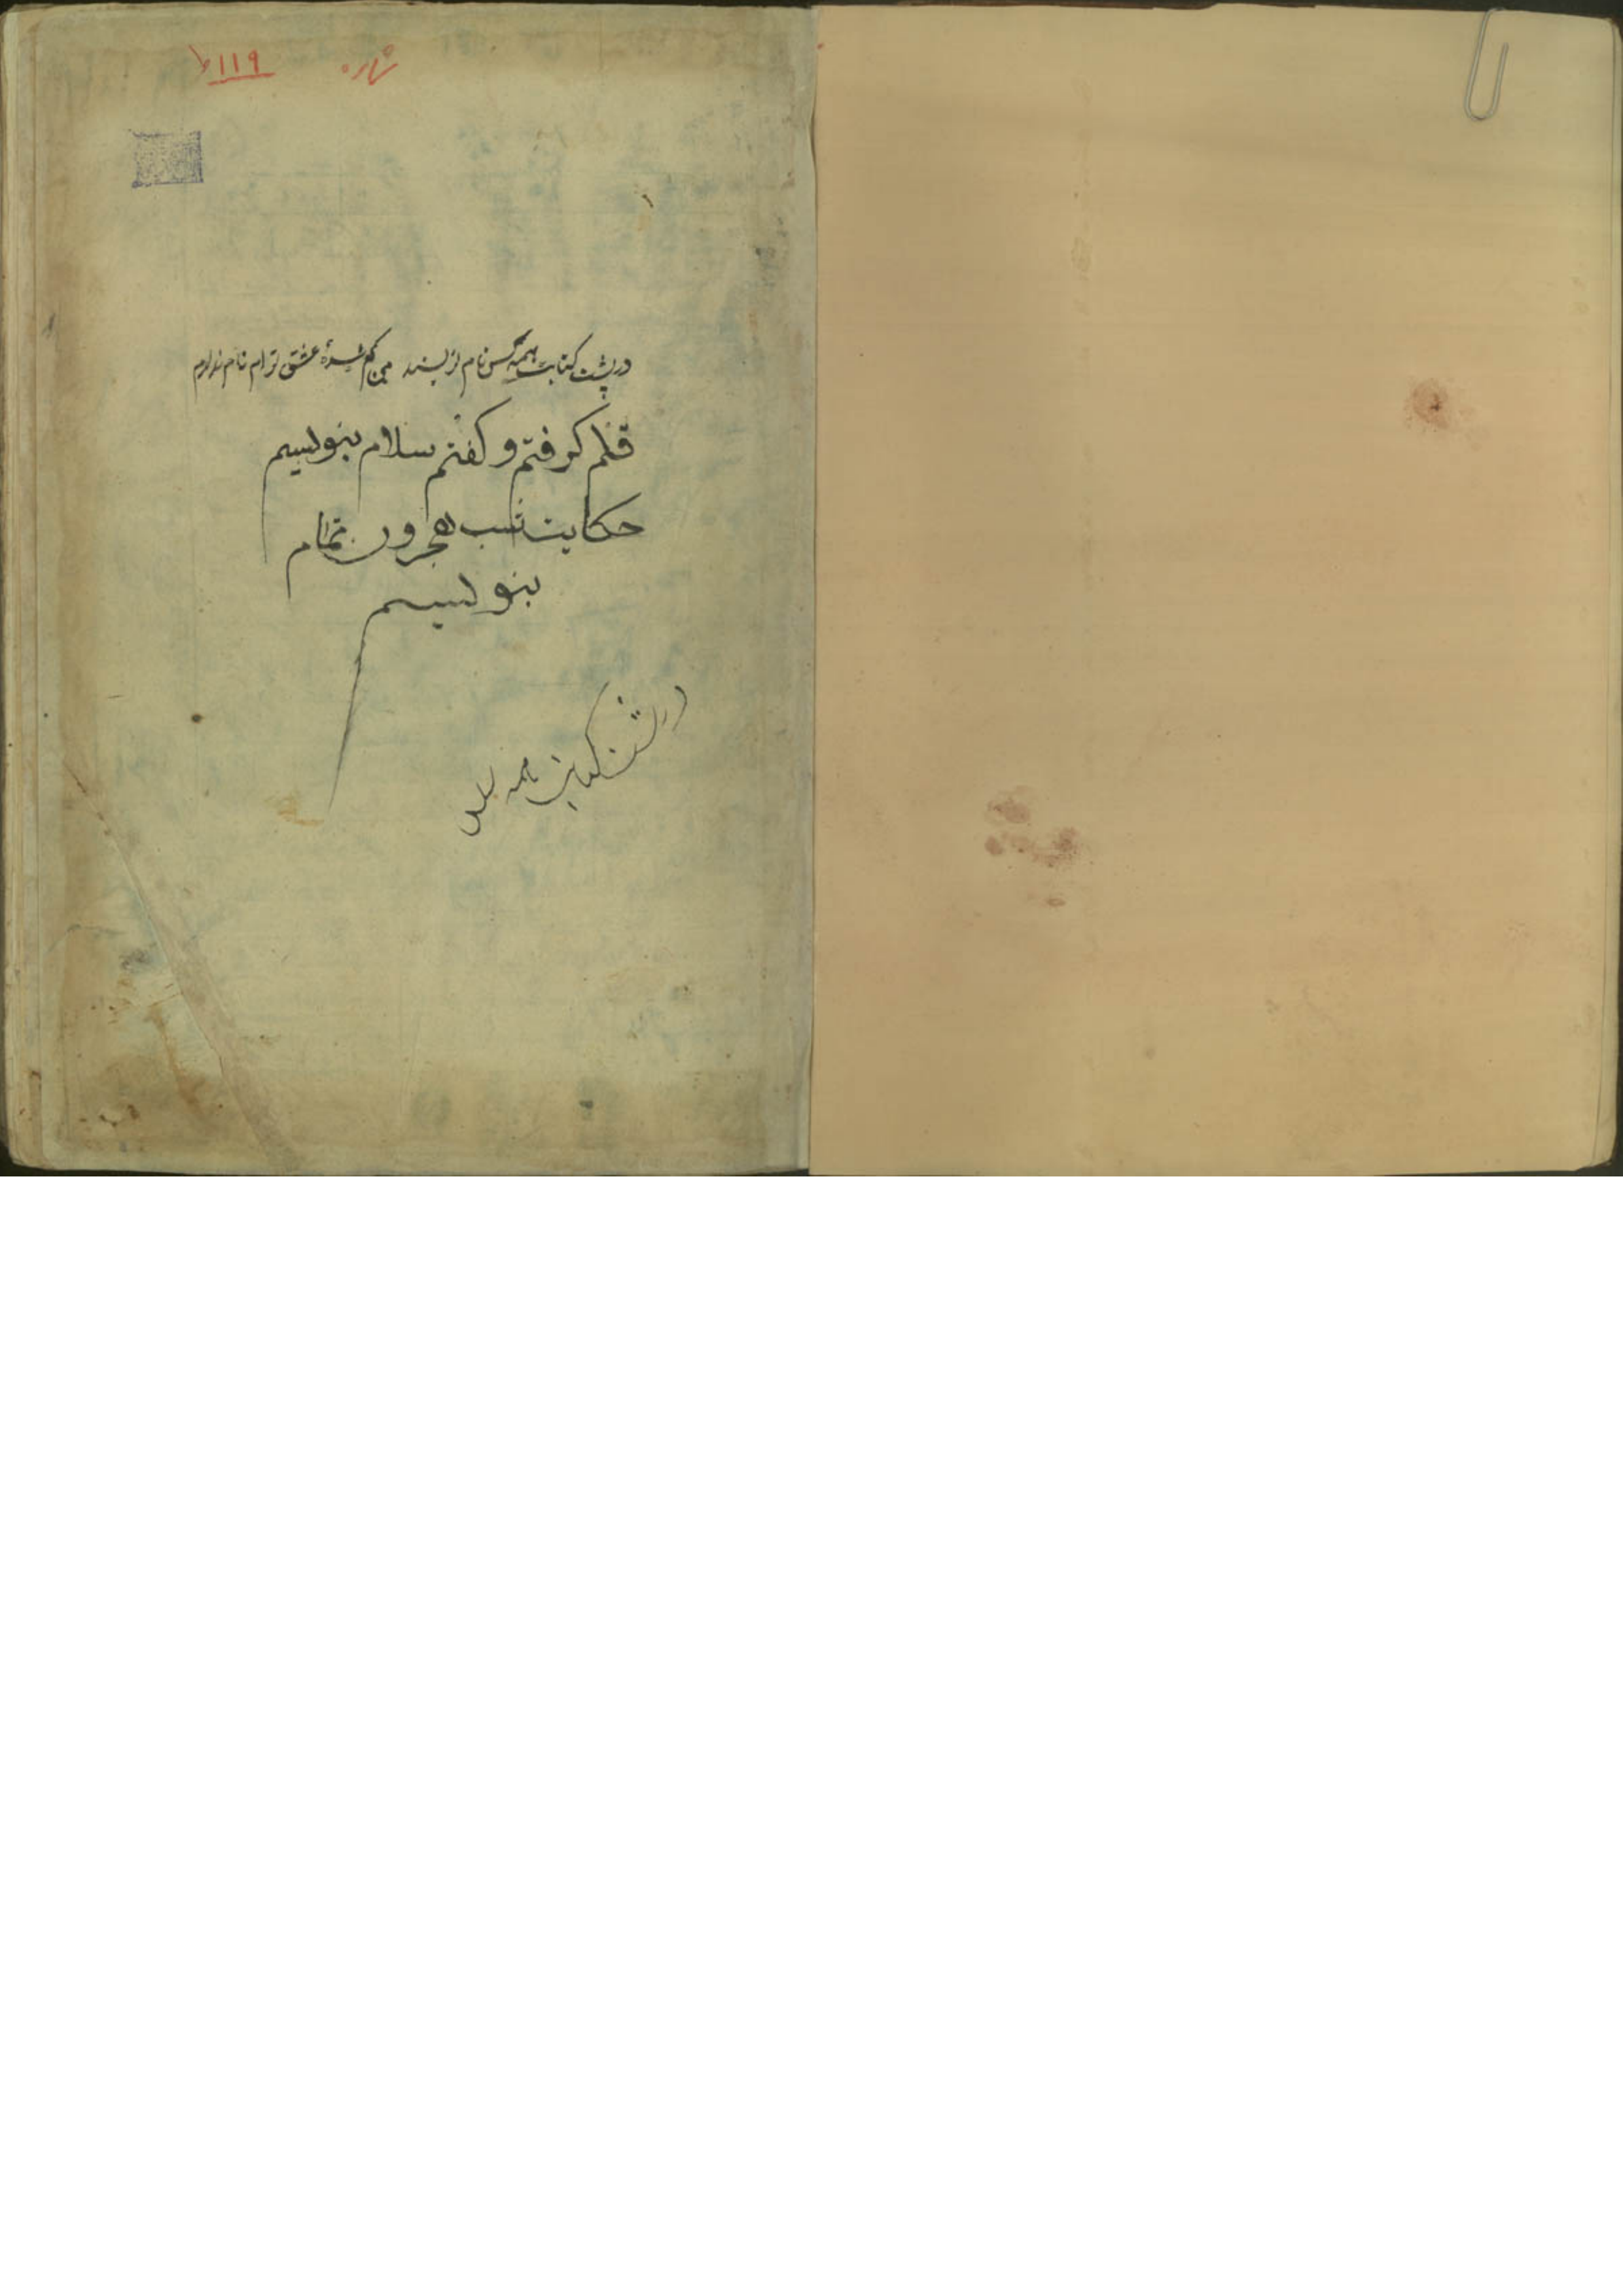 شماره ۱۱۹
در پشت کتابت همه کس نام نویسند من گم شدهٔ عشق توام نام ندارم
قلم کرفتم و کفتم سلام بنویسم
حکایت شب هجرون تمام
بنویسم
در پشت کتابت همه کس